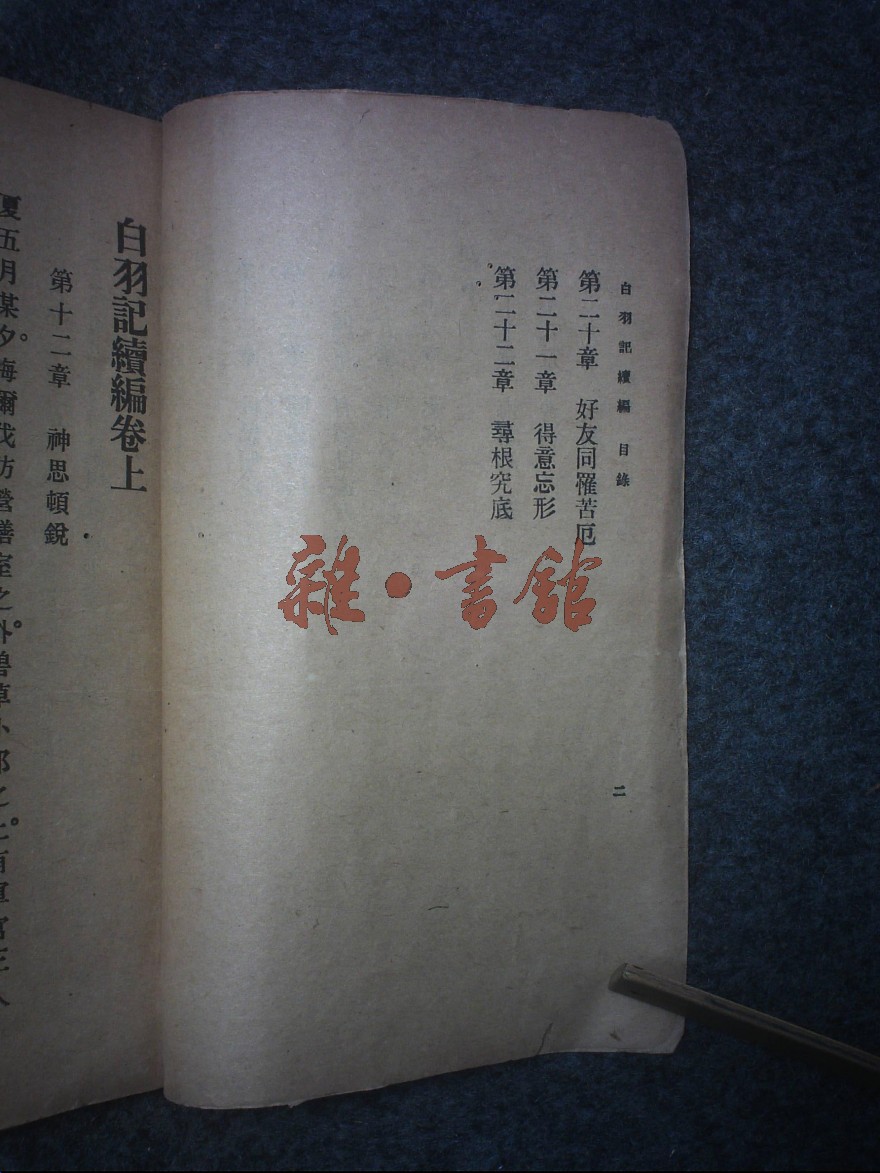 白羽記續編 目錄
二
第二十章 好友同罹苦厄
第二十一章 得意忘形
第二十二章 尋根究底
雜·書館
白羽記續編卷上
第十二章 神思頓銳
夏五月某夕。梅爾伐訪營繕室之外。碧草小